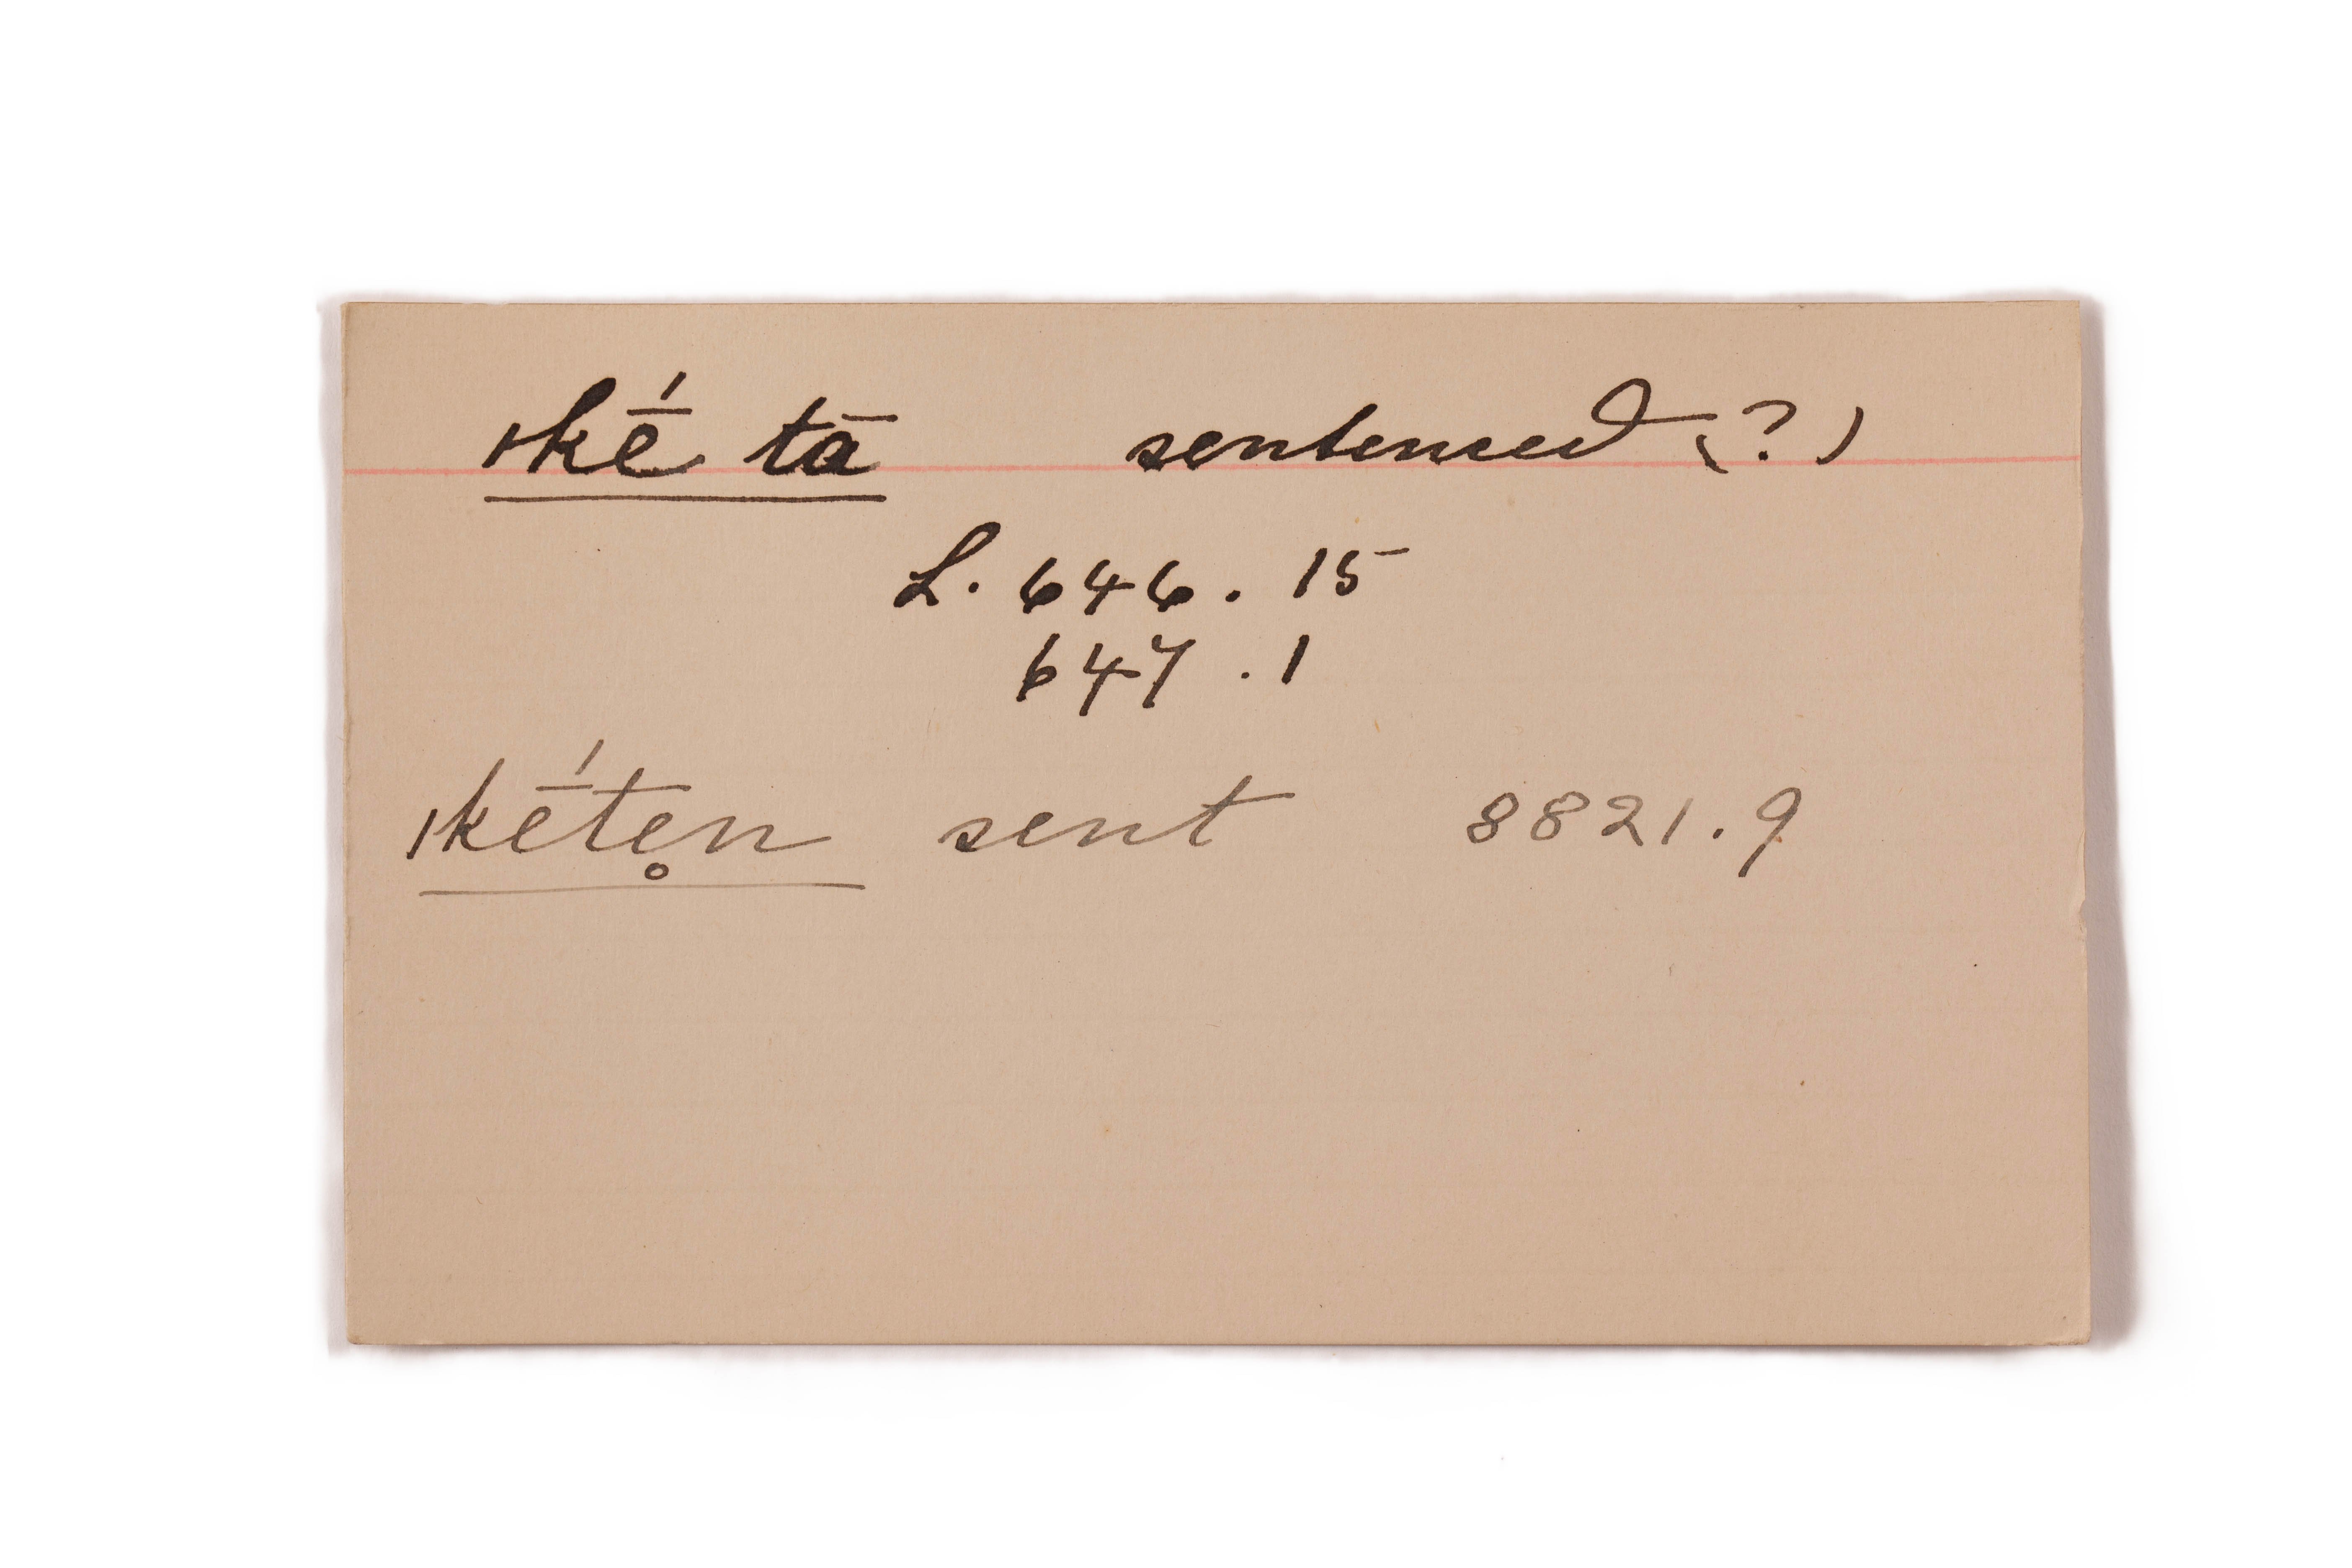 ıkḗ tā sentenced (?)
L. 646. 15
647 .1
ıkḗte̥n sent 8821.9